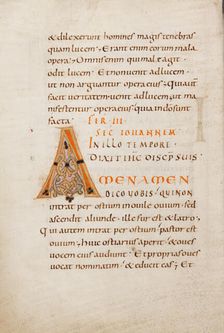 & dilexerunt homines magis tenebras
quam lucem · Erant enim eorum mala
opera · Omnis enim qui male agit ·
odit lucem · Et non uenit ad lucem
ut non arguantur opera eius · Qui autem
facit ueritatem uenit ad lucem ut ma
nifestentur opera eius quia in do sunt
facta
FER III
SEC IOHANNEM
IN ILLO TEMPORE
DIXIT IHC DISCP SUIS
AMEN AMEN
DICO UOBIS · QUI NON
intrat per ostium in ouile ouium · sed
ascendit aliunde · ille fur est & latro ·
Qui autem intrat per ostium pastor est
ouium · huic ostiarius aperit · & oues
uocem eius audiunt · Et proprias oues
uocat nominatim · & educit eas · Et